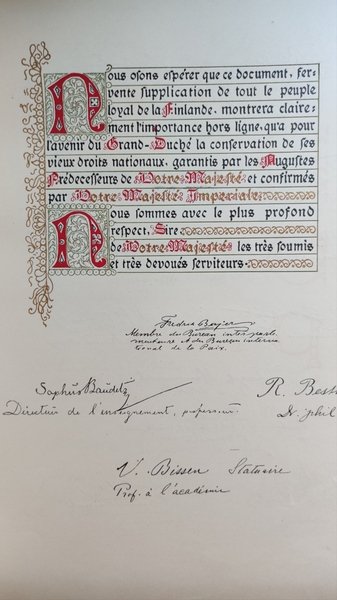 Nous osons espérer que ce document, fer-
vente supplication de tout le peuple
loyal de la Finlande, montrera claire-
ment l'importance hors ligne, qu'a pour
l'avenir du Grand-Duché la conservation de ses
vieux droits nationaux, garantis par les Augustes
Prédecesseurs de Votre Majesté et confirmés
par Votre Majesté Imperiale.
Nous sommes avec le plus profond
respect, Sire
de Votre Majesté les très soumis
et très devoués serviteurs.
Fredrik Bajer
Membre du Bureau interparle-
mentaire & du Bureau interna-
tional de la Paix.
Sophus Bauditz
Directeur de l'enseignement, professeur.
R. Best
Dr. phil
V. Bissen Statuaire
Prof. à l'académie